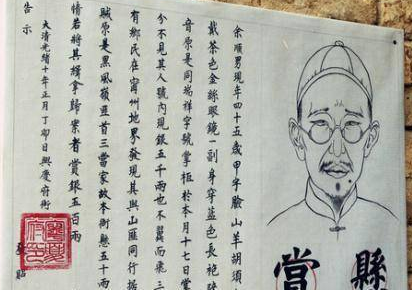 懸賞
余順男現年四十五歲甲午臉山羊胡須
戴茶色金絲眼鏡一副身穿藍色長袍
音原是同瑞祥字號掌柜於本月十七日堂
分不見其人號內現銀五千兩也不翼而飛三
有鄉民在甯州地界發現其與山匪同行據
賊原是黑風嶺匪首三當家故本衙懸五十兩
情若將其緝拿歸案者賞銀五百兩
大清光緒十年正月丁卯日興慶府衙
告示